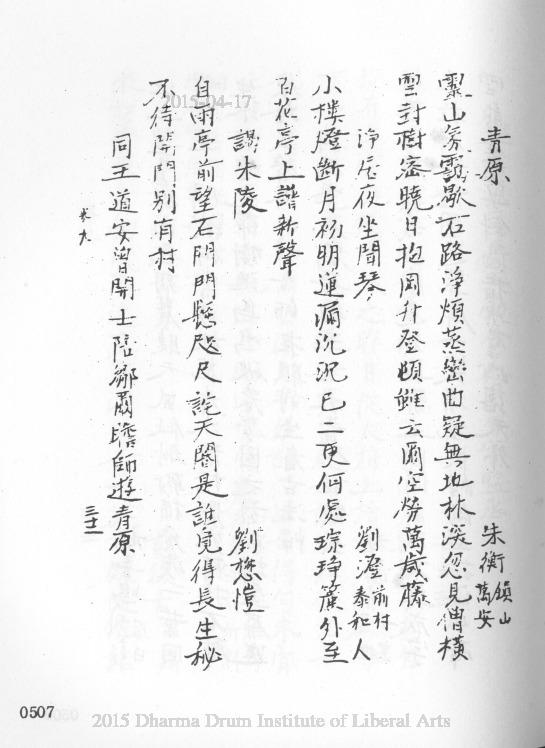 青原　朱衡 鎮山 萬安
靈山雰靄歇石路淨煩蒸巒曲疑無地林深忽見僧橫
雲封樹密曉日抱岡升登頓雖云爾空勞萬歲藤
淨居夜坐聞琴　劉渥 前村 泰和人
小樓燈斷月初明蓮漏沉沉已二更何處琮琤簾外至
百花亭上譜新聲
謁朱陵　劉懋愷
自雨亭前望石門門懸咫尺詫天閽是誰覓得長生秘
不待開門別有村
同王道安曾開士陪鄒爾瞻師遊青原　三十一
卷九
2015-04-17
0507
2015 Dharma Drum Institute of Liberal Arts